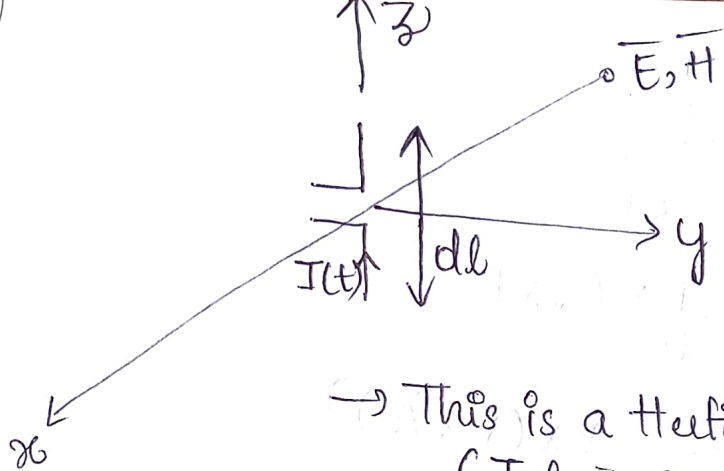 z
E, H
y
I(t)
dl
x
→ This is a